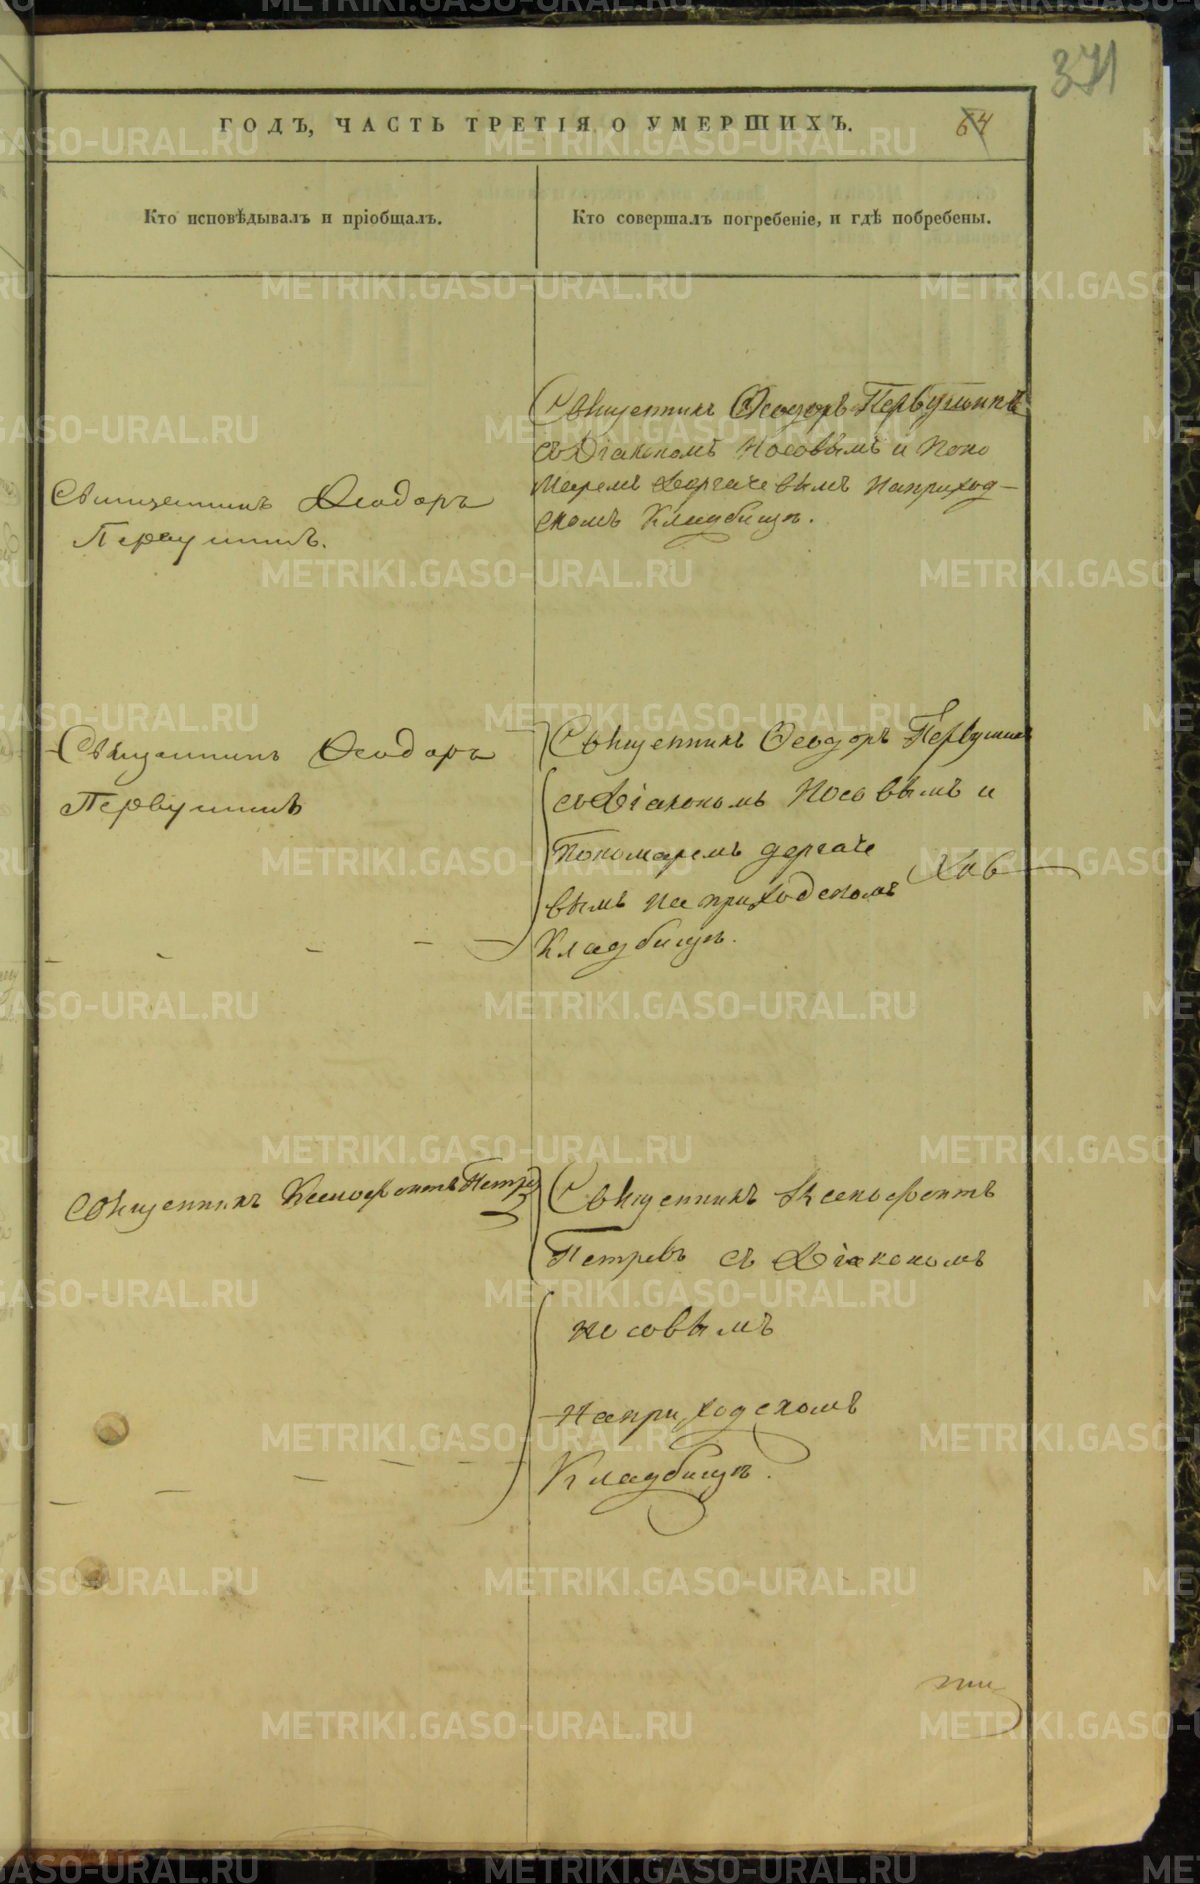 371
ГОДЪ, ЧАСТЬ ТРЕТІЯ О УМЕРШИХЪ.
64
Кто исповѣдывалъ и пріобщалъ.
Кто совершалъ погребеніе, и гдѣ побребены.
Священникъ Ѳеодоръ
Первушинъ.
Священникъ Ѳеодоръ Первушинъ
съ Діакономъ Носовымъ и Поно
маремъ Дергачевымъ на приход-
скомъ Кладбищѣ.
Священникъ Ѳеодоръ
Первушинъ
Священникъ Ѳеодоръ Первушинъ
съ Діакономъ Носовымъ и
Пономаремъ Дергаче
вымъ на приходскомъ
Кладбищѣ.
Священникъ Ксенофонтъ Петро
въ
Священникъ Ксенофонтъ
Петровъ съ Діакономъ
Носовымъ
На приходскомъ
Кладбищѣ.
METRIKI.GASO-URAL.RU